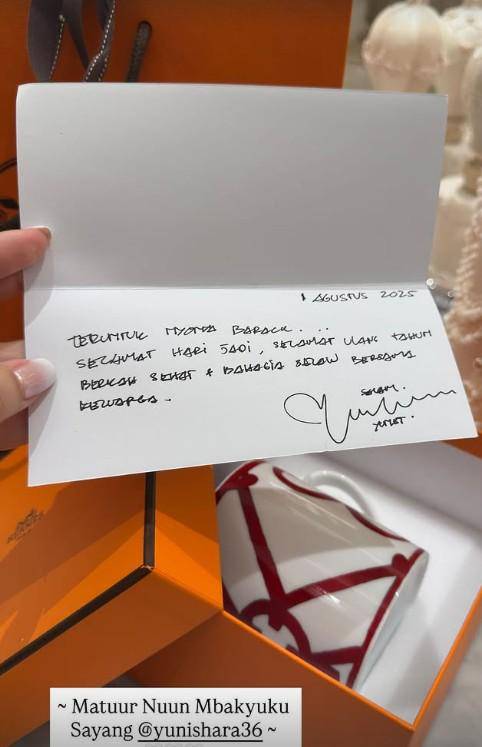 1 AGUSTUS 2025
TERUNTUK NYONYA BARACK...
SELAMAT HARI JADI, SELAMAT ULANG TAHUN
BERKAH SEHAT & BAHAGIA SELALU BERSAMA
KELUARGA.
SALAM.
HERMÈS
~ Matuur Nuun Mbakyuku
Sayang @yunishara36 ~